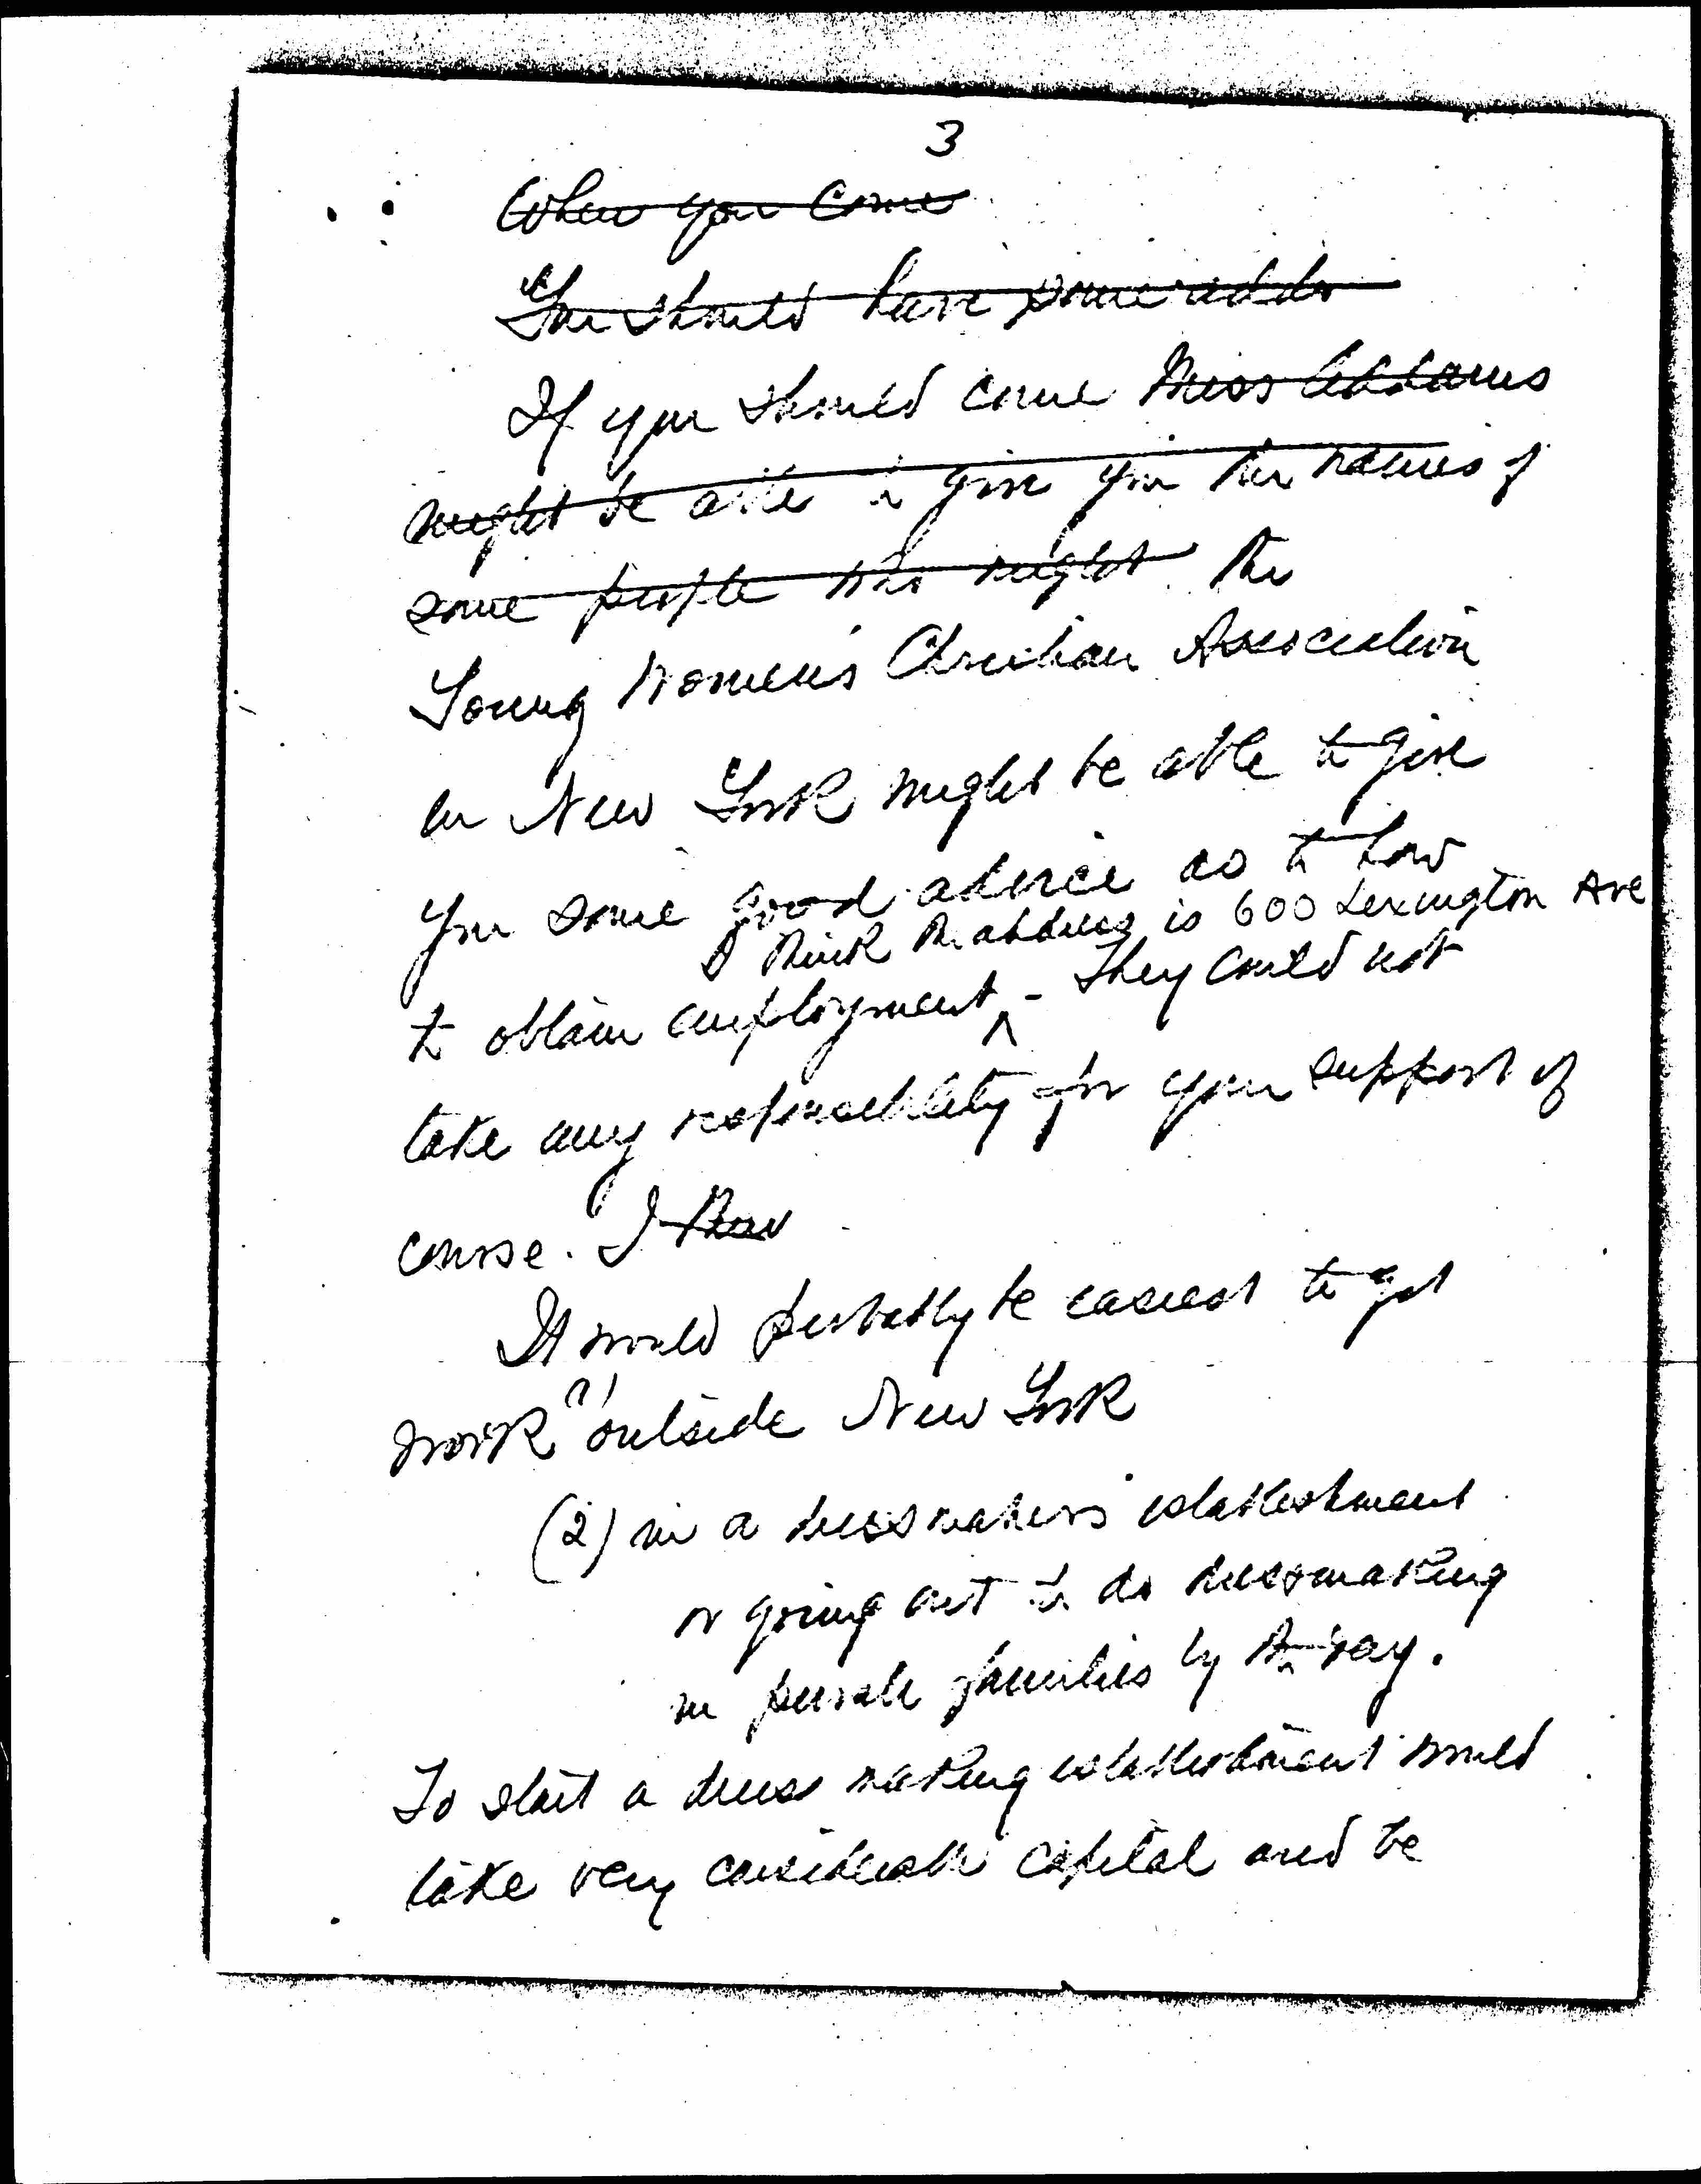 3
When you come
You should have some addr
If you should come Miss Addams
might be able to give you the names of
some people who might the
Young Women's Christian Association
in New York might be able to give
you some good advice as to how
I think the address is 600 Lexington Ave
to obtain employment ^ - They could not
take any responsibility for your support of
course. I
It would probably be easiest to get
work (1) outside New York
(2) in a dressmakers establishment
or going out to do dressmaking
in private families by the day.
To start a dress making establishment would
take very considerable capital and be